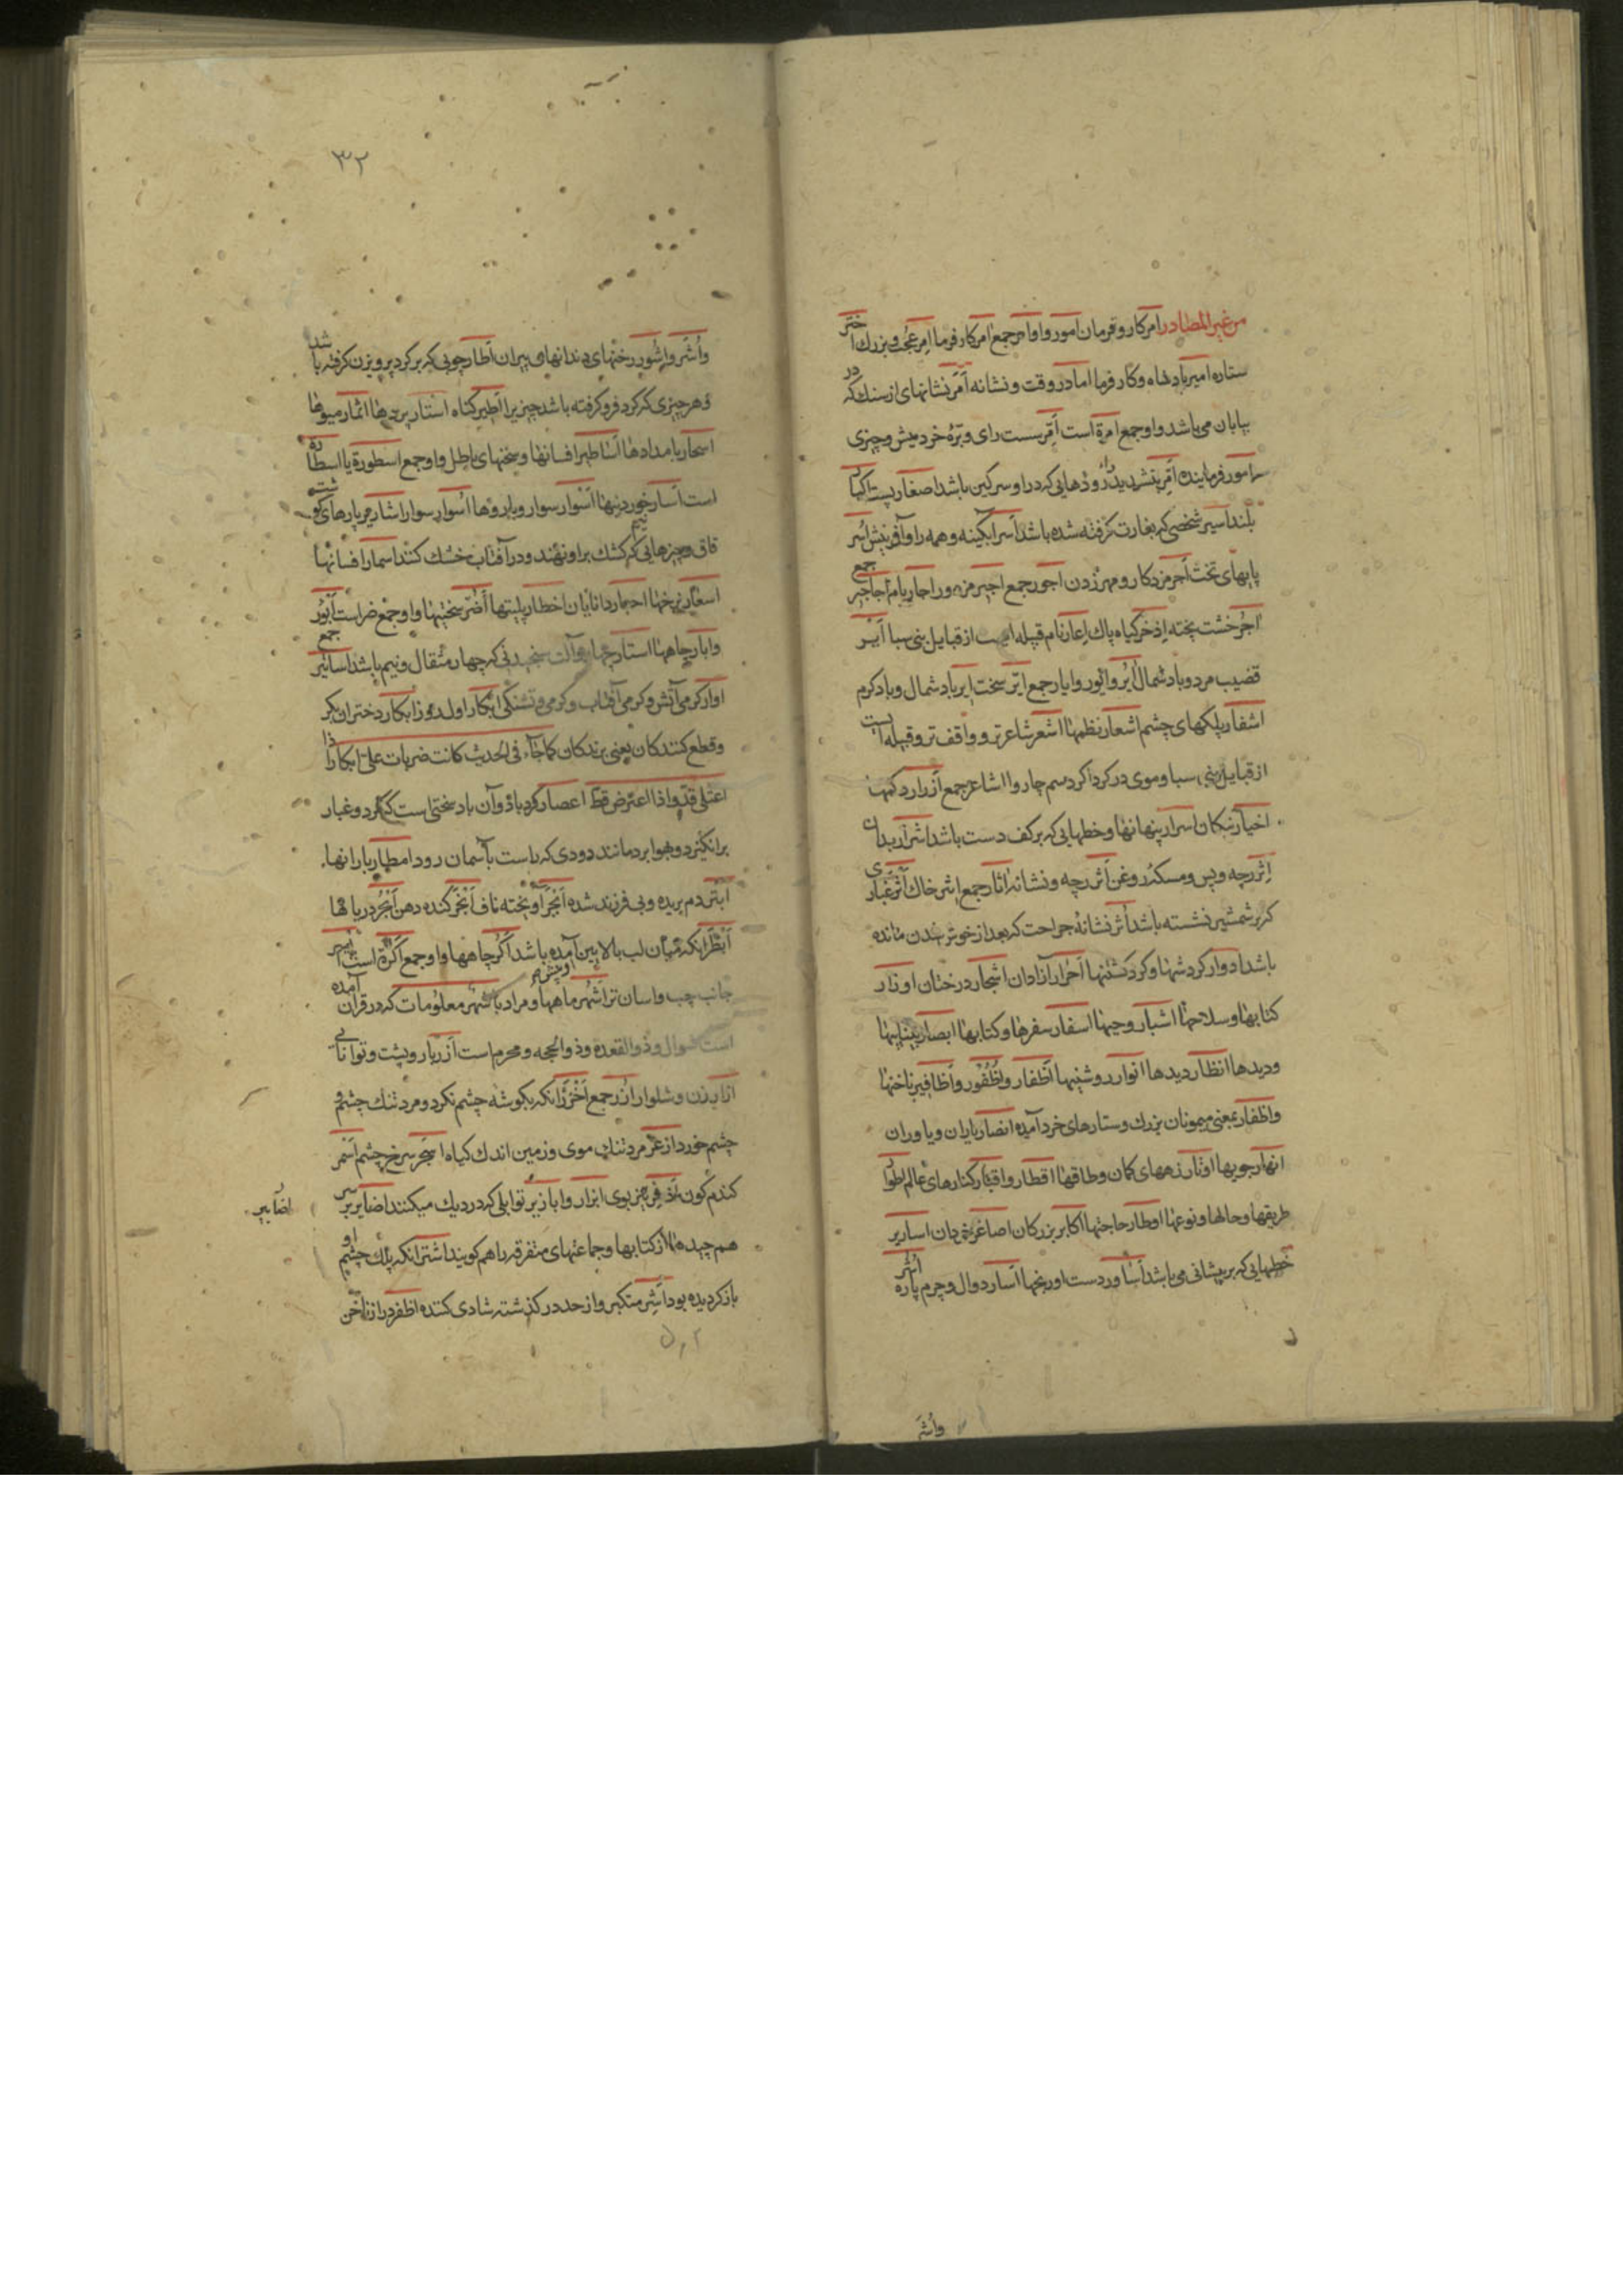 من غیر المصادر امر کار و فرمان امور و اوامر جمع امر کار فرما امر عجب و بزرك اختر
ستاره امیر پادشاه و کار فرما امار در وقت و نشانه امر نشانهای از سنك که در
بیابان می باشد و او جمع امرة است امر سست رای و بره خرد میش و چیزی
امور فرماینده بتشدید را روذهایی که در او سرکین باشد اصغار پست اکبار
بلند اسیر شخصی که بغارت کرفته شده باشد اسر ابکینه و همه را و آفرینش اسر
پایهای تخت اجر مزد کار و مهر زدن اجور جمع اجیر مزدور اجار بام اجاجیر جمع
اجر خشت پخته اذخر کیاه پاك اعار نام قبیله ایست از قبایل بنی سبا ایر
قضیب مرد و باد شمال ایر و ایور و ایار جمع ایر سخت ایر باد شمال و باد کرم
اشفار پلکهای چشم اشعار نظمها اشعر شاعر تر و واقف تر و قبیله ایست
از قبایل بنی سبا و موی در کرداکرد سم چاروا اشاعر جمع ازرار دکمها
اخیار نیکان اسرار پنهانها و خطهایی که بر کف دست باشد اشرار بدان
اثر رچه و پس و مسکه روغن اثر رچه و نشانه اثار جمع اثر خاك اثر غباری
که بر شمشیر نشسته باشد اثر نشانهٔ جراحت که بعد از خوش شدن مانده
باشد ادوار کردشها و کردکشتنها احرار آزادان اشجار درختان اوزار
کتابها و سلاحها اشبار وجبها اسفار سفرها و کتابها ابصار بیناییها
و دیدها انظار دیدها انوار روشنیها اظفار و اظفور و اظافیر ناخنها
و اظفار بمعنی میمونان بزرك و ستارهای خرد آمده انصار یاران و یاوران
انهار جویها اوتار زههای کمان و طاقها اقطار و اقتار کنارهای عالم اطوار
طریقها و حالها و نوعها اوطار حاجتها اکابر بزرکان اصاغر خردان اساریر
خطهایی که بر پیشانی می باشد اساور دست اورنجها اسار دوال و چرم پاره اشر
واشر
۳۲
واشر و اشور رختهای دندانهای پیران اطار چوبی که بر کرد پرویزن کرفته باشد
و هر چیزی که کرد فرو کرفته باشد چیز یرا اطیر کناه استار پردها اثمار میوها
اسحار بامدادها اساطیر افسانها و سخنهای باطل و او جمع اسطورة یا اسطاره
است اسار خوردنیها اسوار سوار و بارّوها اسوار سوار اشاریر پارهای کوشت
قاق و چیزهایی که کشك براو نهند و در آفتاب خشك کنند اسمار افسانها
اسعار نرخها احبار دانایان اخطار پلیتها اضر سختیها و او جمع ضر است ابور
و ابار چاهها استار چهار و آلت سنجیدنی که چهار مثقال و نیم باشد اساتیر جمع
اوار کرمی آتش و کرمی آفتاب و کرمی و تشنکی ابکار اول روز ابکار دختران بکر
و قطع کنندکان یعنی برندکان کما جاء فی الحدیث کانت ضربات علی ابکارا اذا
اعتلی قد و اذا اعترض قط اعصار کردباد و آن باد سختی است که کرد و غبار
برانکیزد و بهوا برد مانند دودی که راست بآسمان رود امطار بارانها
ابتر دم بریده و بی فرزند شده ابجر آویخته ناف ابخر کنده دهن ابحر دریاها
ابظر انکه میان لب بالایین آمده باشد اکر چاهها و او جمع اکرة است ایسر
جانب چپ و اسان تر اشهر ماهها و مراد باشهر معلومات که در قران آمده
است شوال و ذو القعده و ذو الحجه و محرم است ازر یار و پشت و توانائی
ازار زن و شلوار ازر جمع اخزر انکه بکوشه چشم نکرد و مرد تنك چشم و
چشم خورد ازعر مرد تنك موی و زمین اندك کیاه اسجر سرخ چشم اسمر
کندم کون اذفر تیز بوی ابزار و ابازیر توابلی که در دیك میکنند اضابیر
هم چیدها از کتابها و جماعتهای متفرقه را هم کویند اشتر انکه پلك چشم او
باز کردیده بود اشر متکبر و از حد در کذشته شادی کننده اظفر دراز ناخن
اضابیر